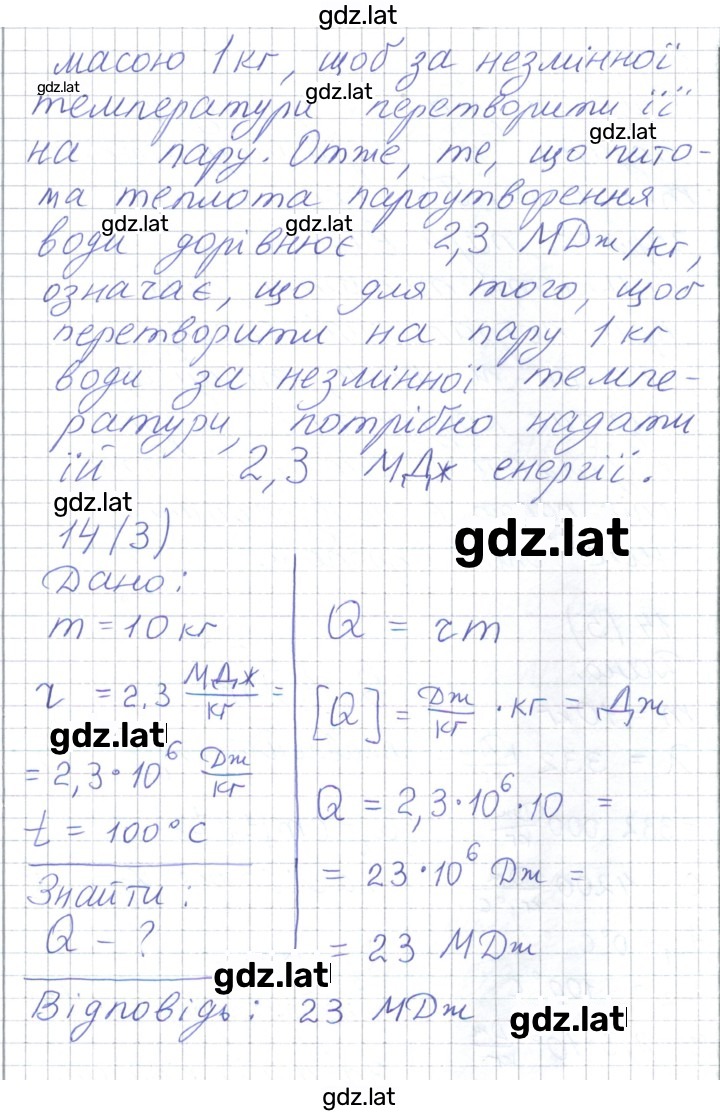 gdz.lat
масою 1 кг, щоб за незмінної
gdz.lat gdz.lat
температури перетворити її
gdz.lat
на пару. Отже, те, що пито-
ма теплота пароутворення
gdz.lat gdz.lat
води дорівнює 2,3 МДж/кг,
означає, що для того, щоб
перетворити на пару 1 кг
води за незмінної темпе-
ратури, потрібно надати
їй 2,3 МДж енергії.
gdz.lat
14(3)
gdz.lat
Дано:
m = 10 кг
r = 2,3 МДж/кг =
gdz.lat
= 2,3·10⁶ Дж/кг
t = 100°C
Знайти:
Q – ?
Q = rm
[Q] = Дж/кг · кг = Дж
Q = 2,3·10⁶·10 =
= 23·10⁶ Дж =
= 23 МДж
gdz.lat
Відповідь: 23 МДж
gdz.lat
gdz.lat